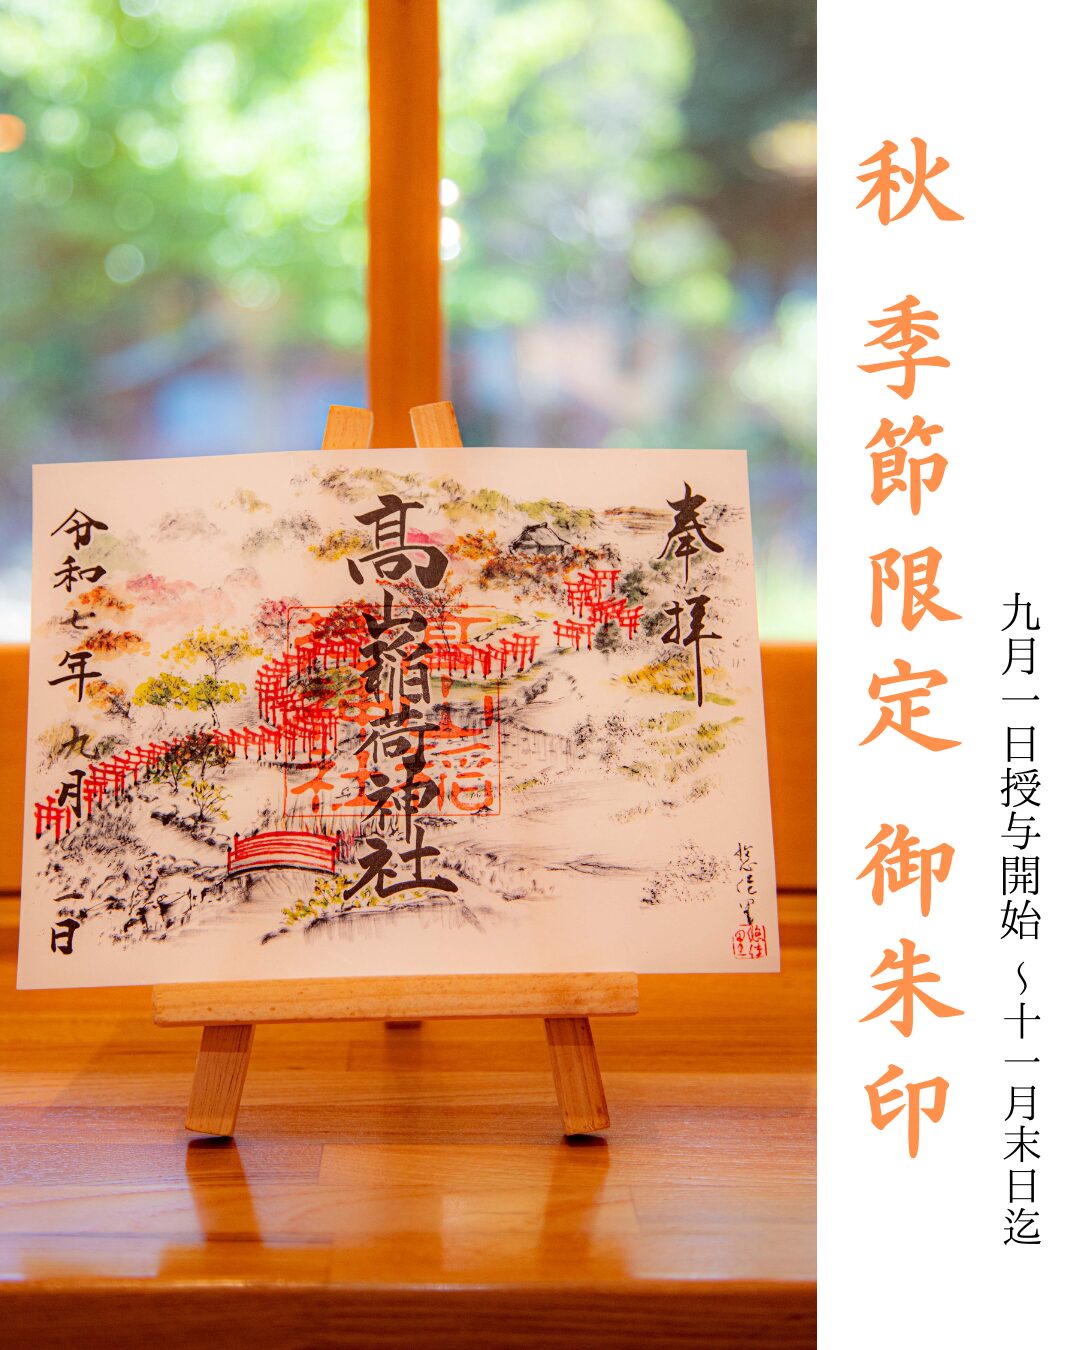 秋 季節限定 御朱印
九月一日授与開始 〜十一月末日迄
奉拝
高山稲荷神社
令和七年九月一日